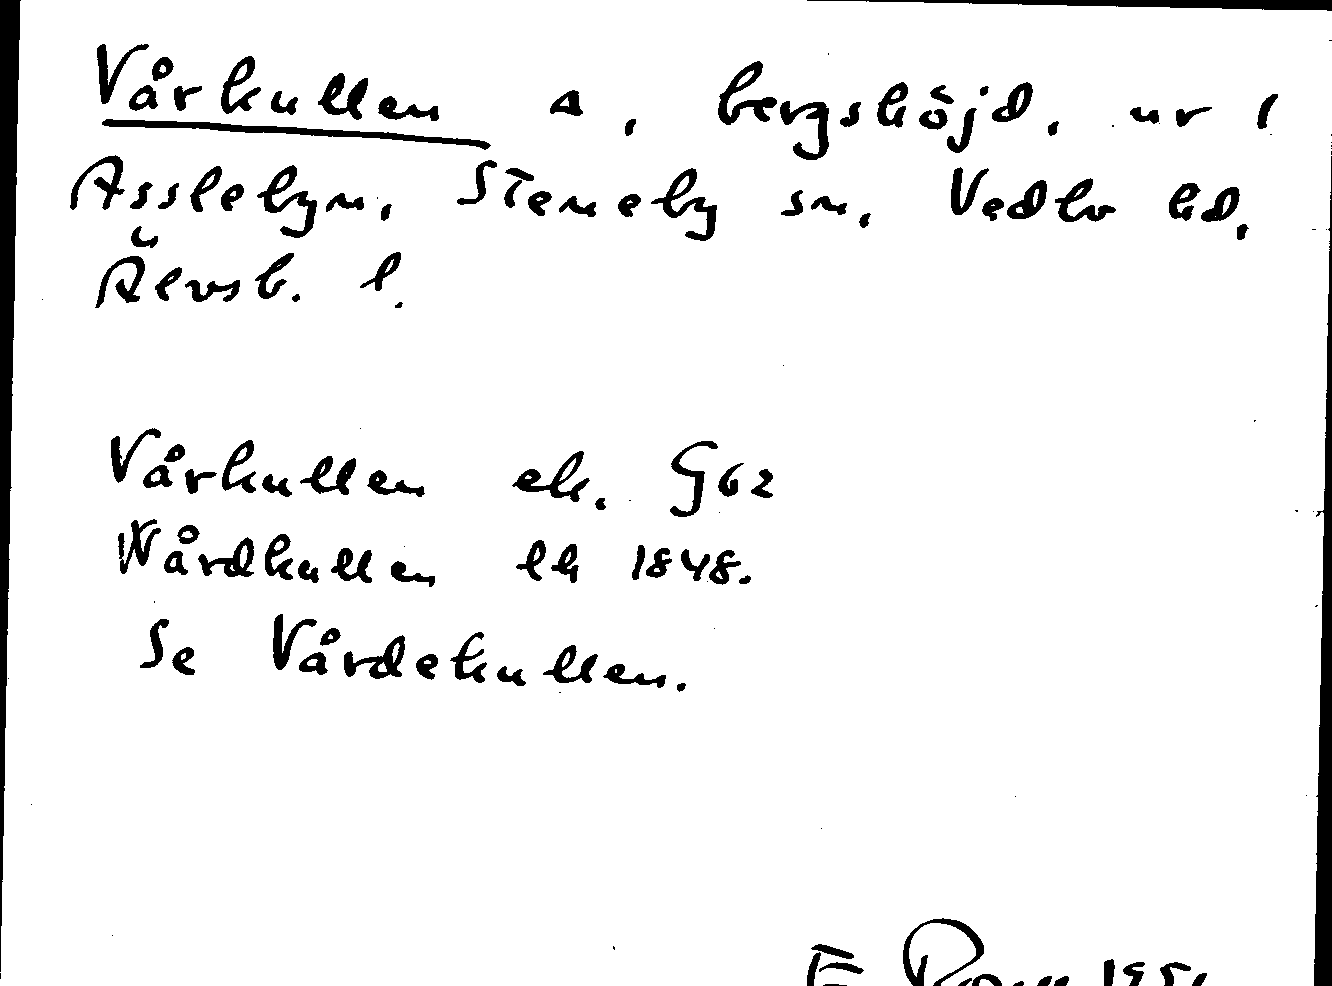 Vårkullen ▵, bergshöjd, nr 1
Asslebyn, Steneby sn, Vedbo hd,
Älvsb. l.
Vårkullen ek. G62
Wårdkullen lh 1848.
Se Vårdekullen.
E